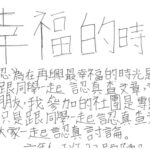 幸福的時
認為在再興最幸福的時光是
跟同學一起認真查文資
朋友,我參加的社團是
只是跟同學一起認真查
大家一起認真討論。